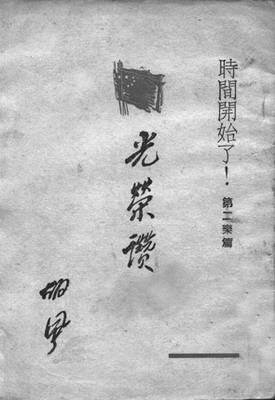 時間開始了！
第二樂篇
光榮讚
胡風